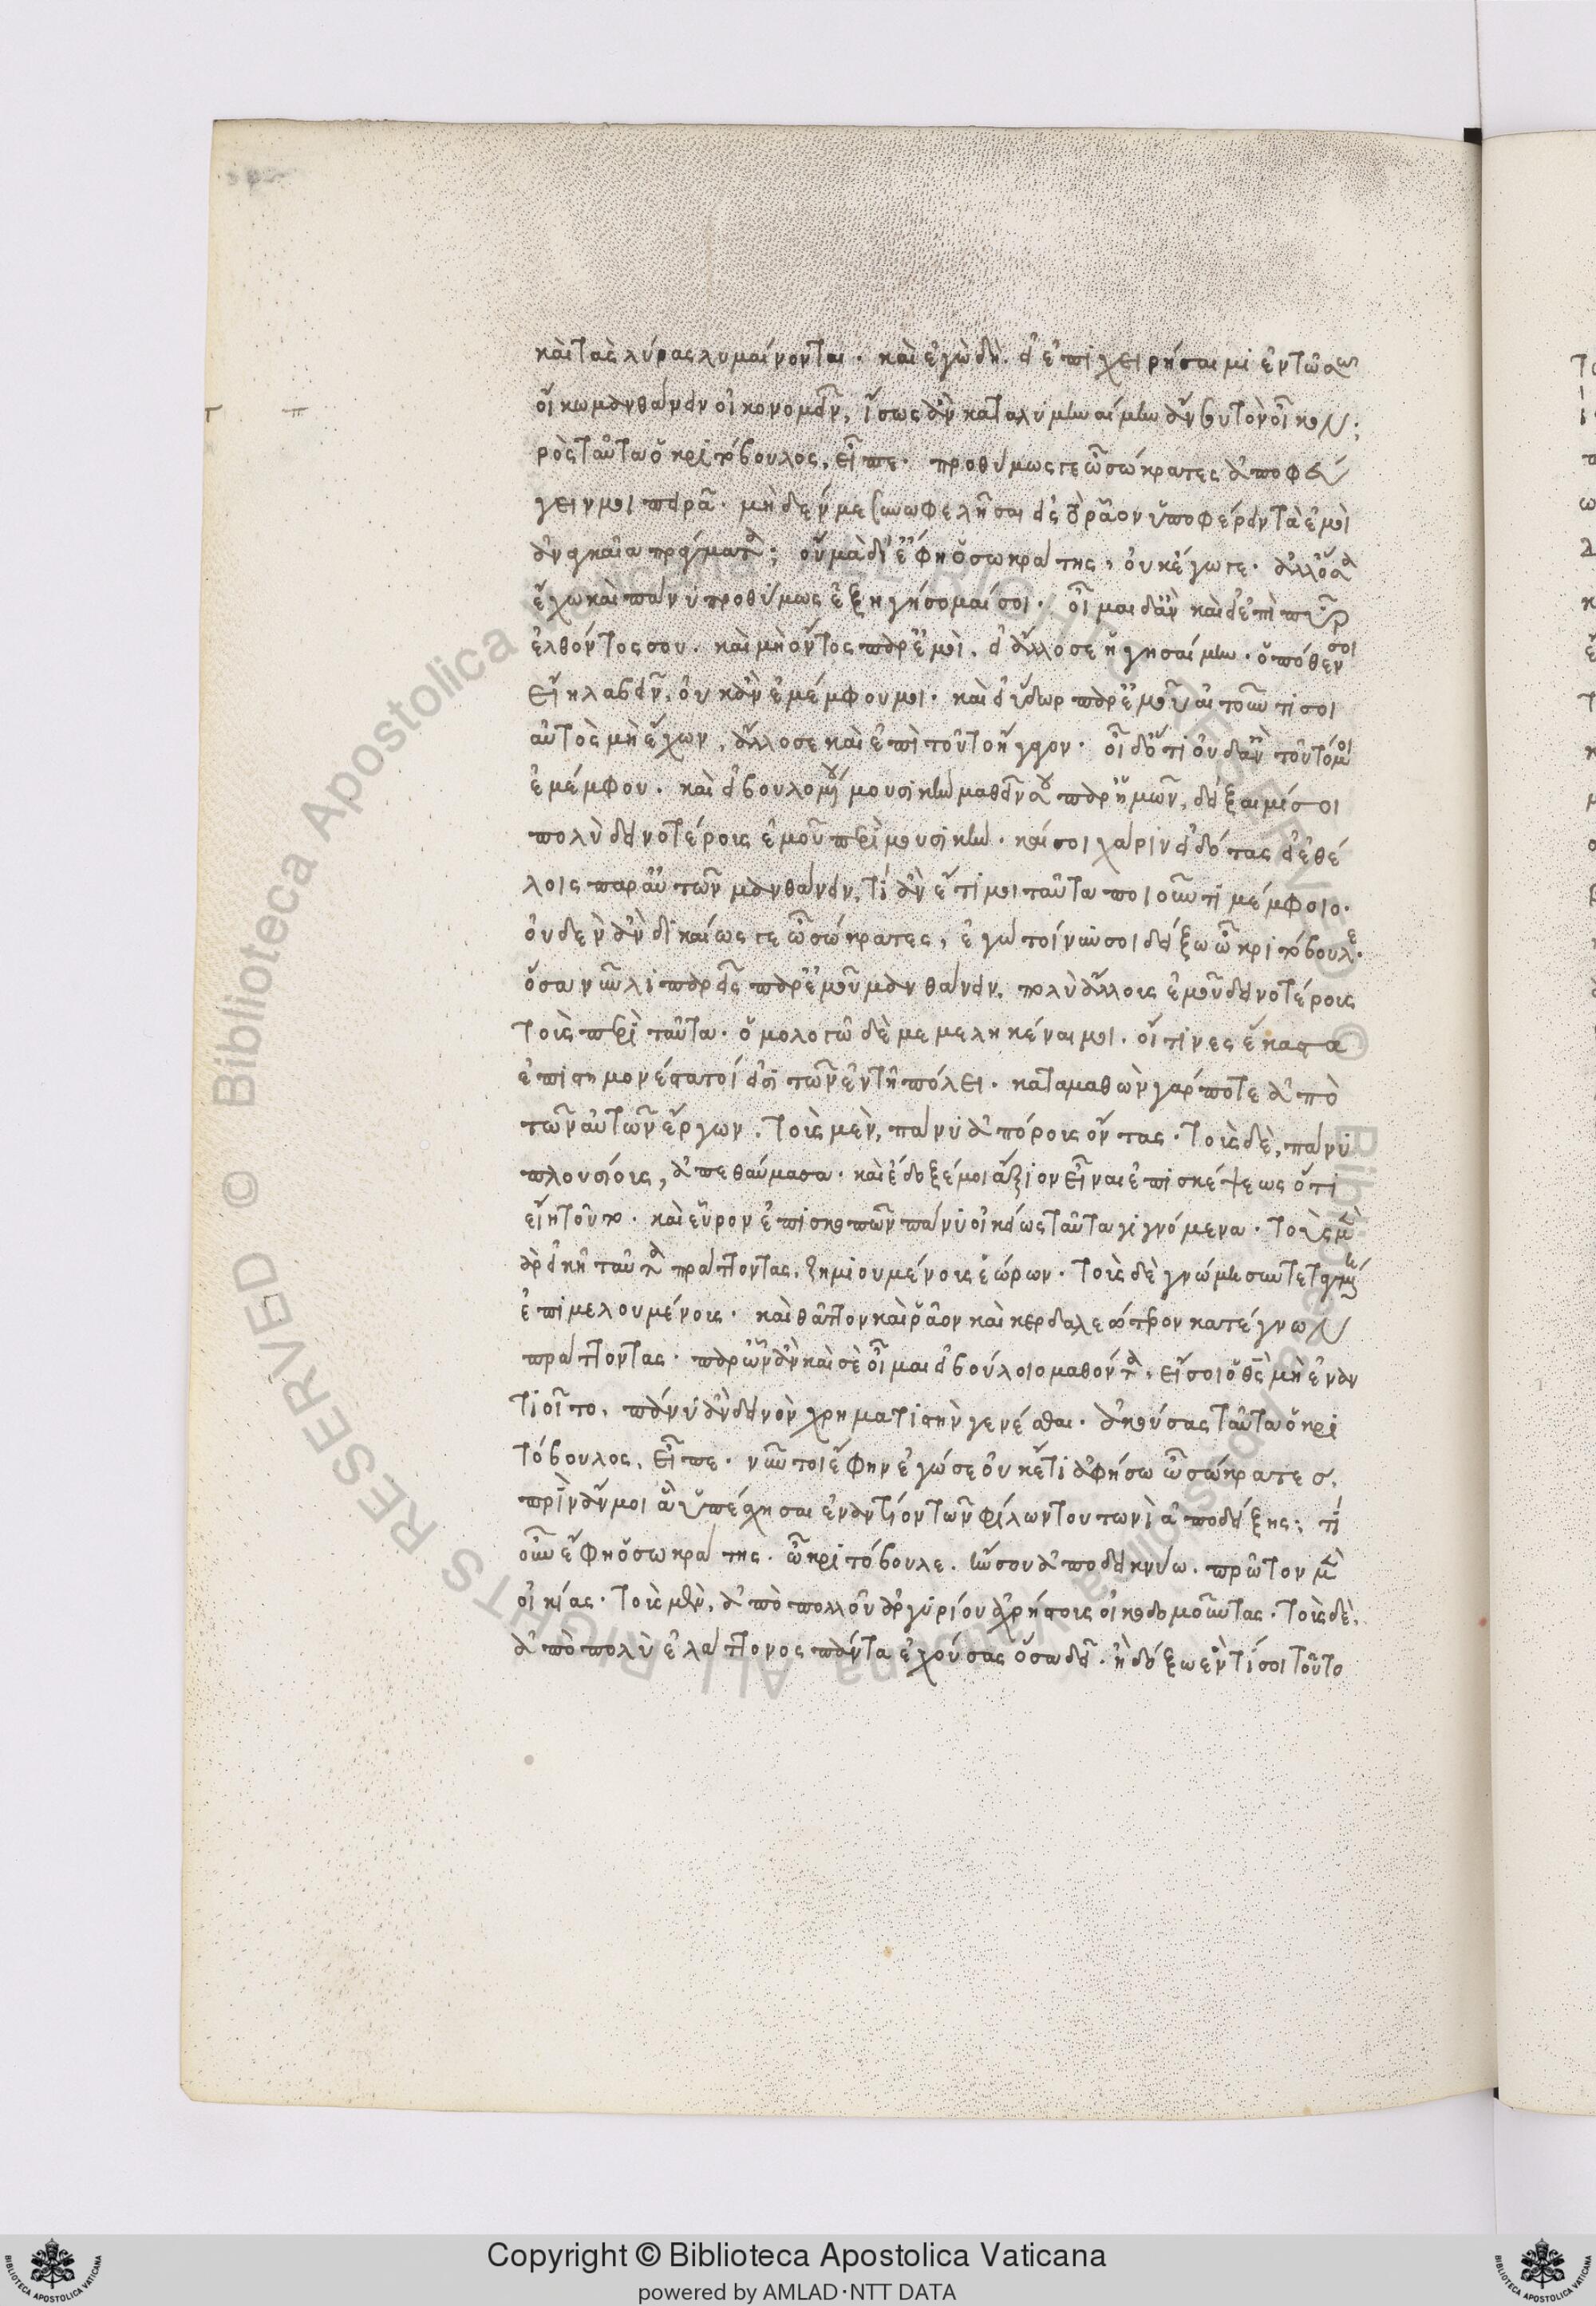 καὶ τὰς λύρας λυμαίνονται. καὶ ἐγὼ δὴ εἰ ἐπιχειρήσαιμι ἐν τῷ σῷ
οἴκῳ μανθάνειν οἰκονομεῖν, ἴσως ἂν καταλυμηναίμην ἄν σου τὸν οἶκον;
ρὸς ταῦτα ὁ κριτόβουλος, εἶπε. προθύμως γε ὦ σώκρατες ἀποφεύ
γειν μοι πειρᾶ. μηδέν με συνωφελῆσαι εἰς τὸ ῥᾷον ὑποφέρειν τὰ ἐμοὶ
ἀναγκαῖα πράγματα; οὐ μὰ δί' ἔφη ὁ σωκράτης, οὐκ ἔγωγε. ἀλλ' ὅσα
ἔχω καὶ πάνυ προθύμως ἐξηγήσομαί σοι. οἶμαι δ' ἂν καὶ εἰ ἐπὶ πῦρ
ἐλθόντος σου. καὶ μὴ ὄντος παρ' ἐμοὶ. εἰ ἄλλοσε ἡγησαίμην. ὁπόθεν σοι
εἴη λαβεῖν, οὐκ ἂν ἐμέμφου μοι. καὶ εἰ ὕδωρ παρ' ἐμοῦ αἰτοῦντί σοι
αὐτὸς μὴ ἔχων, ἄλλοσε καὶ ἐπὶ τοῦτο ἤγαγον. οἶδ' ὅτι οὐδ' ἂν τοῦτό μοι
ἐμέμφου. καὶ εἰ βουλομένου μουσικὴν μαθεῖν σου παρ' ἡμῶν, δείξαιμί σοι
πολὺ δεινοτέροις ἐμοῦ περὶ μουσικήν. καί σοι χάριν εἰδότας εἰ ἐθέ
λοις παρ' αὐτῶν μανθάνειν, τί ἂν ἔτι μοι ταῦτα ποιοῦντι μέμφοιο.
οὐδὲν ἂν δικαίως γε ὦ σώκρατες, ἐγὼ τοίνυν σοι δείξω ὦ κριτόβουλε.
ὅσα νῦν λιπαρεῖς παρ' ἐμοῦ μανθάνειν, πολὺ ἄλλοις ἐμοῦ δεινοτέροις
τοῖς περὶ ταῦτα. ὁμολογῶ δὲ μεμεληκέναι μοι. οἵτινες ἕκαστα
ἐπιστημονέστατοί εἰσι τῶν ἐν τῇ πόλει. καταμαθὼν γάρ ποτε ἀπὸ
τῶν αὐτῶν ἔργων. τοῖς μὲν, πάνυ ἀπόροις ὄντας. τοῖς δὲ, πάνυ
πλουσίοις, ἀπεθαύμασα. καὶ ἔδοξέ μοι ἄξιον εἶναι ἐπισκέψεως ὅτι
εἴη τοῦτο. καὶ εὗρον ἐπισκοπῶν πάνυ οἰκείως ταῦτα γιγνόμενα. τοὺς μὲν
γὰρ εἰκῆ ταῦτα πράττοντας, ζημιουμένοις ἑώρων. τοῖς δὲ γνώμῃ συντεταμένῃ
ἐπιμελουμένοις. καὶ θᾶττον καὶ ῥᾷον καὶ κερδαλεώτερον κατέγνων
πράττοντας. παρ' ὧν ἂν καὶ σὲ οἶμαι εἰ βούλοιο μαθόντα, εἴ σοι ὁ θεὸς μὴ ἐναν
τιοῖτο, πάνυ ἂν δεινὸν χρηματιστὴν γενέσθαι. ἀκούσας ταῦτα ὁ κρι
τόβουλος, εἶπε. νῦν τοι ἔφην ἐγώ σε οὐκέτι ἀφήσω ὦ σώκρατες,
πρὶν ἄν μοι ἃ ὑπέσχησαι ἐναντίον τῶν φίλων τουτωνὶ ἀποδείξῃς; τί
οὖν ἔφη ὁ σωκράτης. ὦ κριτόβουλε. ἤν σου ἀποδεικνύω. πρῶτον μὲν
οἰκίας. τοῖς μὲν, ἀπὸ πολλοῦ ἀργυρίου ἀχρήστοις οἰκοδομοῦντας. τοῖς δὲ,
ἀπὸ πολὺ ἐλάττονος πάντα ἐχούσας ὅσα δεῖ. ἢ δόξω ἕν τί σοι τοῦτο